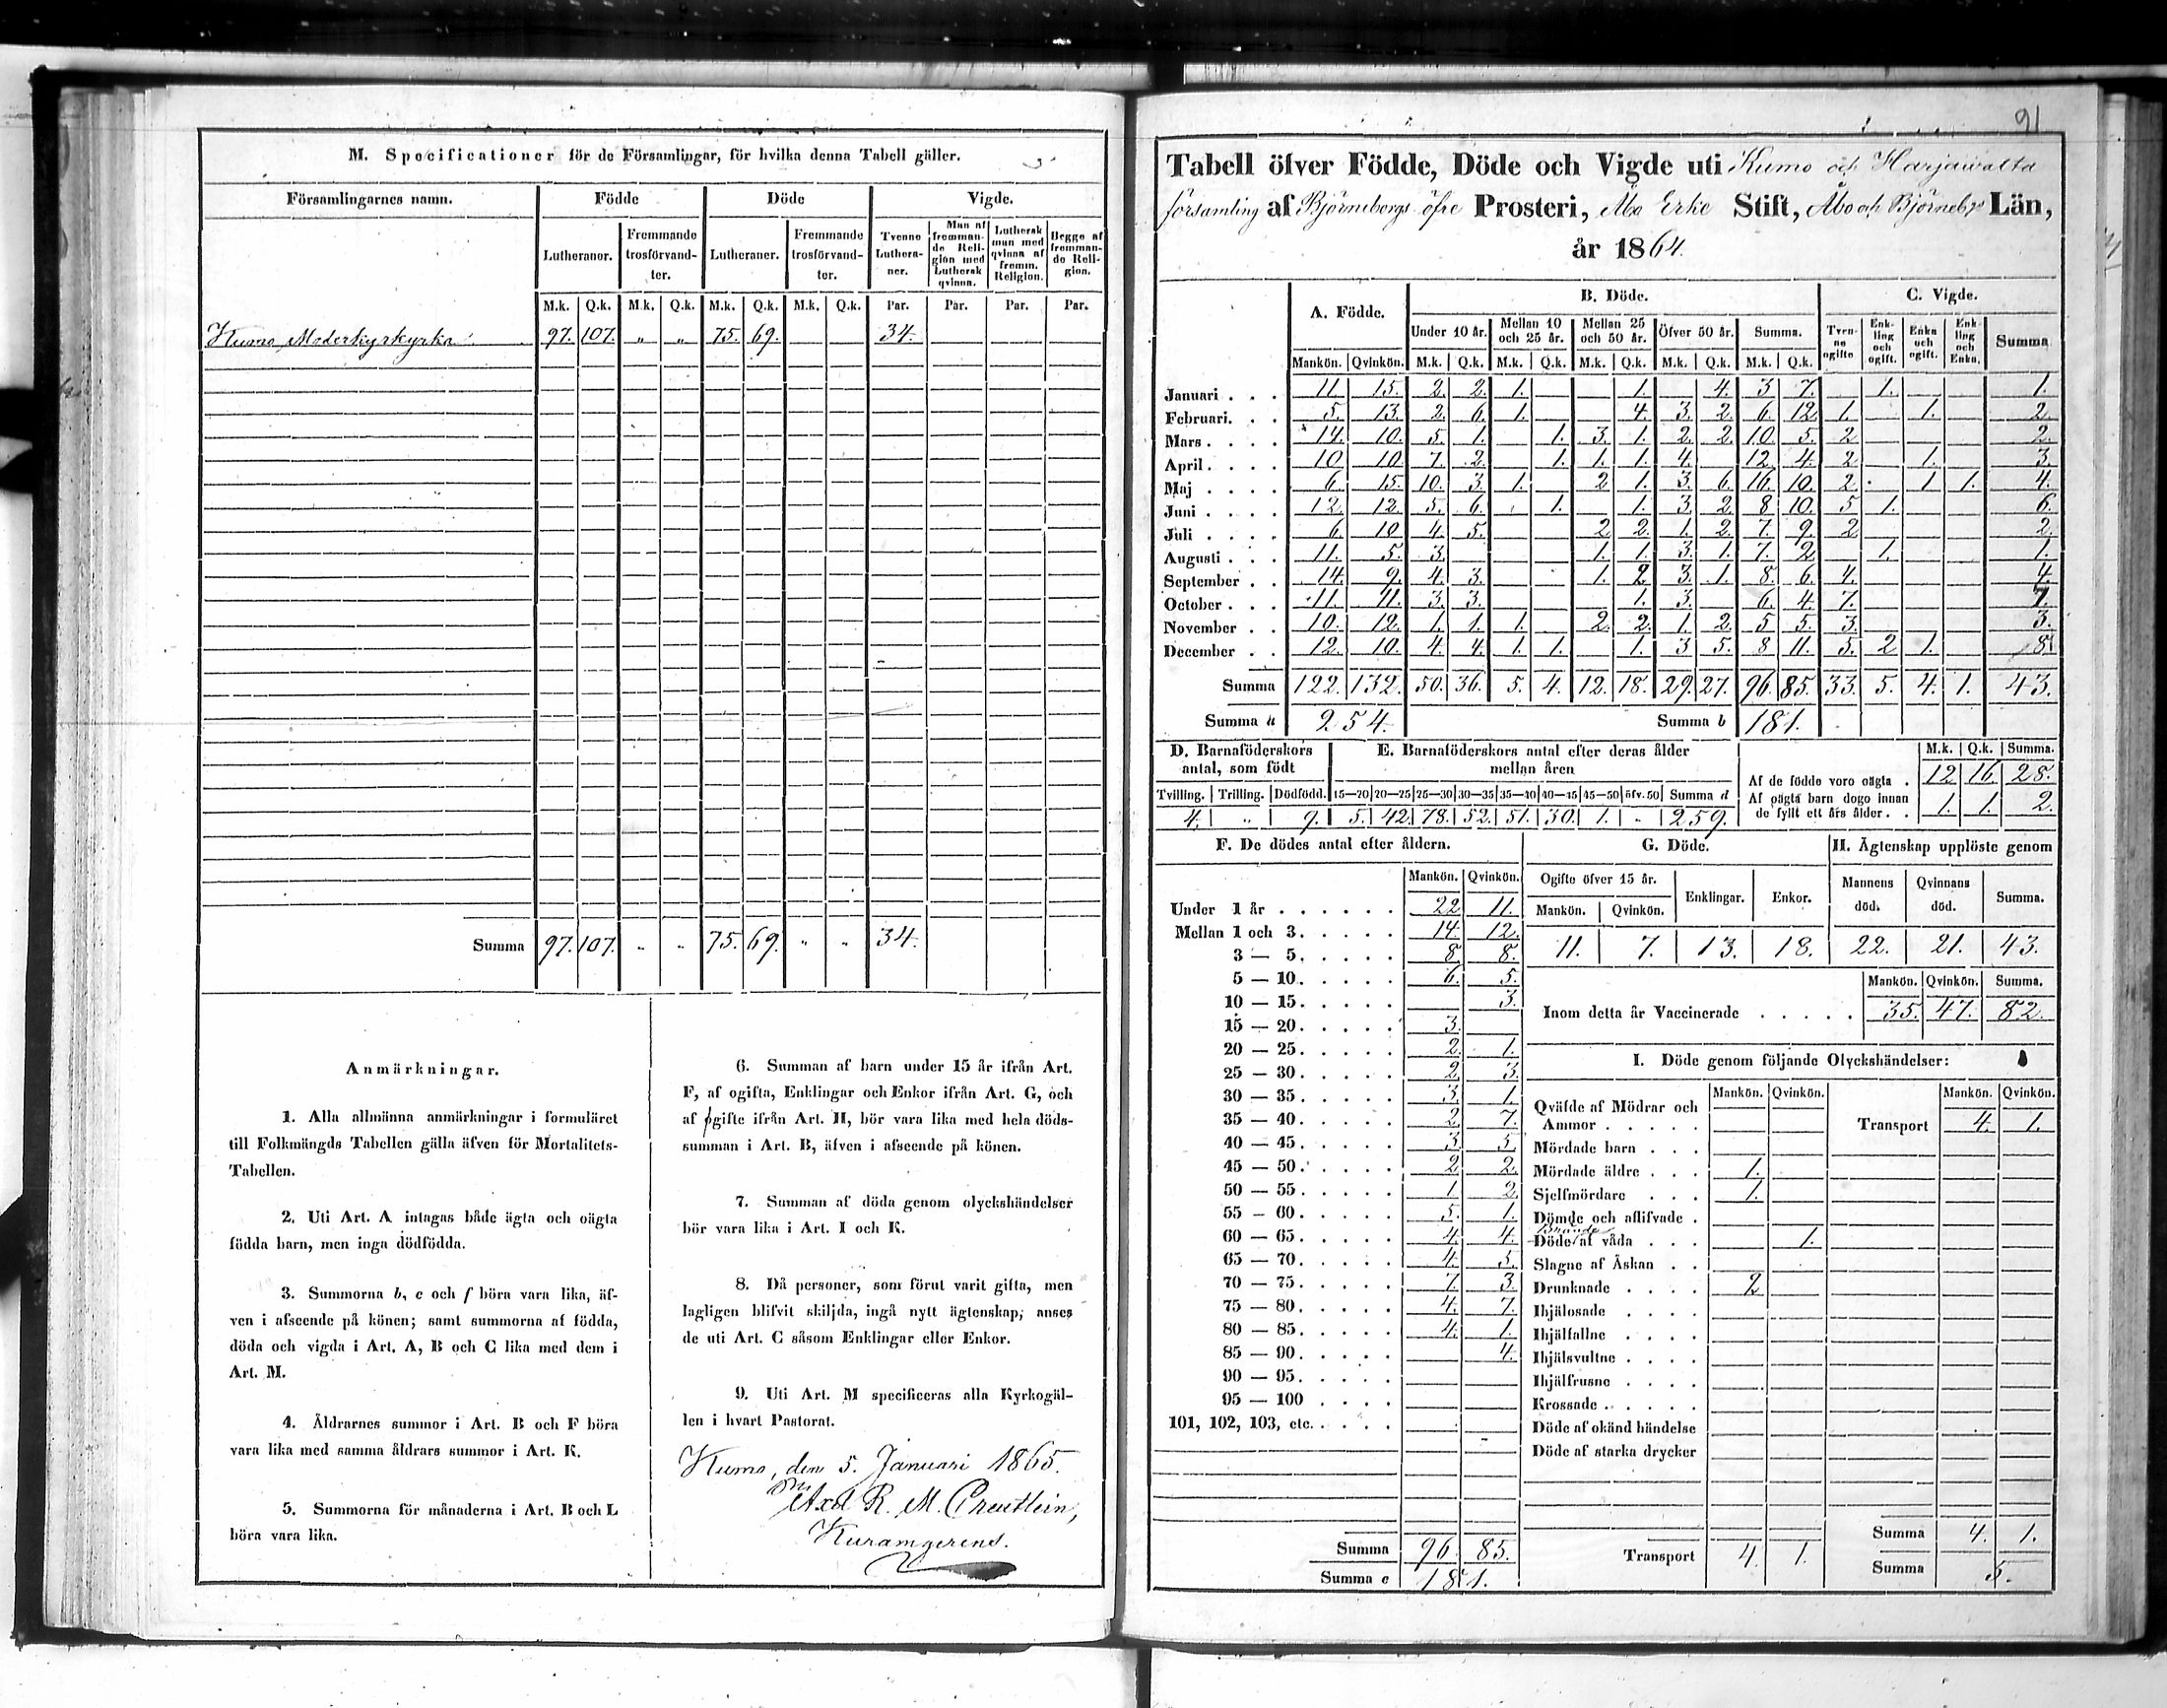 M. Specificationer för de Församlingar, för hvilka denna Tabell gäller.
Församlingarnes namn. Födde Döde Vigde.
Lutheraner. Fremmande trosförvandter. Lutheraner. Fremmande trosförvandter. Tvenne Lutheraner. Man af fremmande Religion med Luthersk qvinna. Luthersk man med qvinna af fremm. Religion. Begge af fremmande Religion.
M.k. Q.k. M.k. Q.k. M.k. Q.k. M.k. Q.k. Par. Par. Par. Par.
Kumo Moderkyrkyrka 97. 107. „ „ 75. 69. 34.
Summa 97. 107. „ „ 75. 69. „ „ 34.
Anmärkningar.
1. Alla allmänna anmärkningar i formuläret
till Folkmängds Tabellen gälla äfven för Mortalitets-
Tabellen.
2. Uti Art. A intagas både ägta och oägta
födda barn, men inga dödfödda.
3. Summorna b, c och f böra vara lika, äf-
ven i afseende på könen; samt summorna af födda,
döda och vigda i Art. A, B och C lika med dem i
Art. M.
4. Åldrarnes summor i Art. B och F böra
vara lika med samma åldrars summor i Art. K.
5. Summorna för månaderna i Art. B och L
böra vara lika.
6. Summan af barn under 15 år ifrån Art.
F, af ogifta, Enklingar och Enkor ifrån Art. G, och
af gifte ifrån Art. H, bör vara lika med hela döds-
summan i Art. B, äfven i afseende på könen.
7. Summan af döda genom olyckshändelser
bör vara lika i Art. I och K.
8. Då personer, som förut varit gifta, men
lagligen blifvit skiljda, ingå nytt ägtenskap, anses
de uti Art. C såsom Enklingar eller Enkor.
9. Uti Art. M specificeras alla Kyrkogäl-
len i hvart Pastorat.
Kumo, den 5. Januari 1865.
Axel R. M. Creutlein,
91
Tabell öfver Födde, Döde och Vigde uti Kumo och Harjawalta
församling af Björneborgs öfre Prosteri, Åbo Erke Stift, Åbo och Björnebgs Län,
år 1864.
A. Födde. B. Döde. C. Vigde.
Under 10 år. Mellan 10 och 25 år. Mellan 25 och 50 år. Öfver 50 år. Summa. Tvenne ogifte Enkling och ogift. Enka och ogift. Enkling och Enka. Summa
Mankön. Qvinkön. M.k. Q.k. M.k. Q.k. M.k. Q.k. M.k. Q.k. M.k. Q.k.
Januari . . . 11. 15. 2. 2. 1. 1. 4. 3 7. 1. 1.
Februari. . . 5. 13. 2. 6. 1. 4. 3. 2. 6. 12. 1. 1. 2.
Mars . . . . 14. 10. 5. 1. 1. 3. 1. 2. 2. 10. 5. 2 2.
April . . . . 10 10. 7. 2. 1. 1. 1. 4. 12. 4. 2. 1. 3.
Maj . . . . 6. 15. 10. 3. 1. 2 1. 3. 6. 16. 10. 2. 1 1. 4.
Juni . . . . 12. 12. 5. 6. 1. 1. 3. 2. 8 10. 5 1. 6.
Juli . . . . 6. 10 4. 5. 2 2. 1. 2. 7. 9. 2. 2.
Augusti . . . 11. 5. 3. 1. 1. 3. 1. 7. 2 1. 1.
September . . 14. 9. 4. 3. 1. 2. 3. 1. 8. 6. 4. 4.
October . . . 11. 11. 3. 3. 1. 3. 6. 4. 7. 7.
November . . 10. 12. 1. 1. 1. 2. 2. 1. 2. 5 5. 3. 3.
December . . 12. 10. 4. 4. 1. 1. 1. 3 5. 8 11. 5. 2 1. 8.
Summa 122. 132. 50. 36. 5. 4. 12. 18. 29. 27. 96. 85. 33. 5. 4. 1. 43.
Summa a 254. Summa b 181.
D. Barnaföderskors antal, som födt E. Barnaföderskors antal efter deras ålder mellan åren
M.k. Q.k. Summa.
Af de födde voro oägta . 12 16. 28.
Af oägta barn dogo innan de fyllt ett års ålder . . 1. 1. 2.
Tvilling. Trilling. Dödfödd. 15—20 20—25 25—30 30—35 35—40 40—45 45—50 öfv. 50 Summa d
4. „ 9. 5. 42. 78. 52. 51. 30. 1. „ 259.
F. De dödes antal efter åldern.
Mankön. Qvinkön.
Under 1 år . . . . . . 22 11.
Mellan 1 och 3. . . . . 14. 12.
3 — 5. . . . . 8. 8.
5 — 10. . . . . 6. 5.
10 — 15. . . . . 3.
15 — 20. . . . . 3.
20 — 25. . . . . 2. 1.
25 — 30. . . . . 2. 3.
30 — 35. . . . . 3. 1.
35 — 40. . . . . 2. 7.
40 — 45. . . . . 3. 5.
45 — 50. . . . . 2. 2.
50 — 55. . . . . 1. 2.
55 — 60. . . . . 5. 1.
60 — 65. . . . . 4. 4.
65 — 70. . . . . 4. 5.
70 — 75. . . . . 7. 3.
75 — 80. . . . . 4. 7.
80 — 85. . . . . 4. 1.
85 — 90. . . . . 4.
90 — 95. . . . .
95 — 100 . . . .
101, 102, 103, etc. . . . .
Summa 96. 85.
Summa c 181.
G. Döde. H. Ägtenskap upplöste genom
Ogifte öfver 15 år. Enklingar. Enkor. Mannens död. Qvinnans död. Summa.
Mankön. Qvinkön.
11. 7. 13. 18. 22. 21. 43.
Mankön. Qvinkön. Summa.
Inom detta år Vaccinerade . . . . . 35. 47. 82.
I. Döde genom följande Olyckshändelser:
Mankön. Qvinkön. Mankön. Qvinkön.
Qväfde af Mödrar och Ammor . . . . . Transport 4. 1.
Mördade barn . . .
Mördade äldre . . . 1.
Sjelfmördare . . . 1.
Dömde och aflifvade .
Döde af våda . . . 1.
Slagne af Åskan . .
Drunknade . . . . 2
Ihjälosade . . . .
Ihjälfallne . . . .
Ihjälsvultne . . . .
Ihjälfrusne . . . .
Krossade . . . . .
Döde af okänd händelse
Döde af starka drycker
Summa 4. 1.
Transport 4. 1. Summa 5.